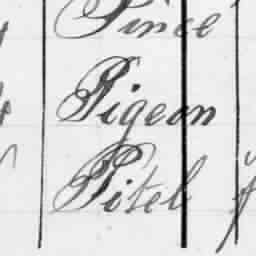 Pince
Pigeon
Pitel